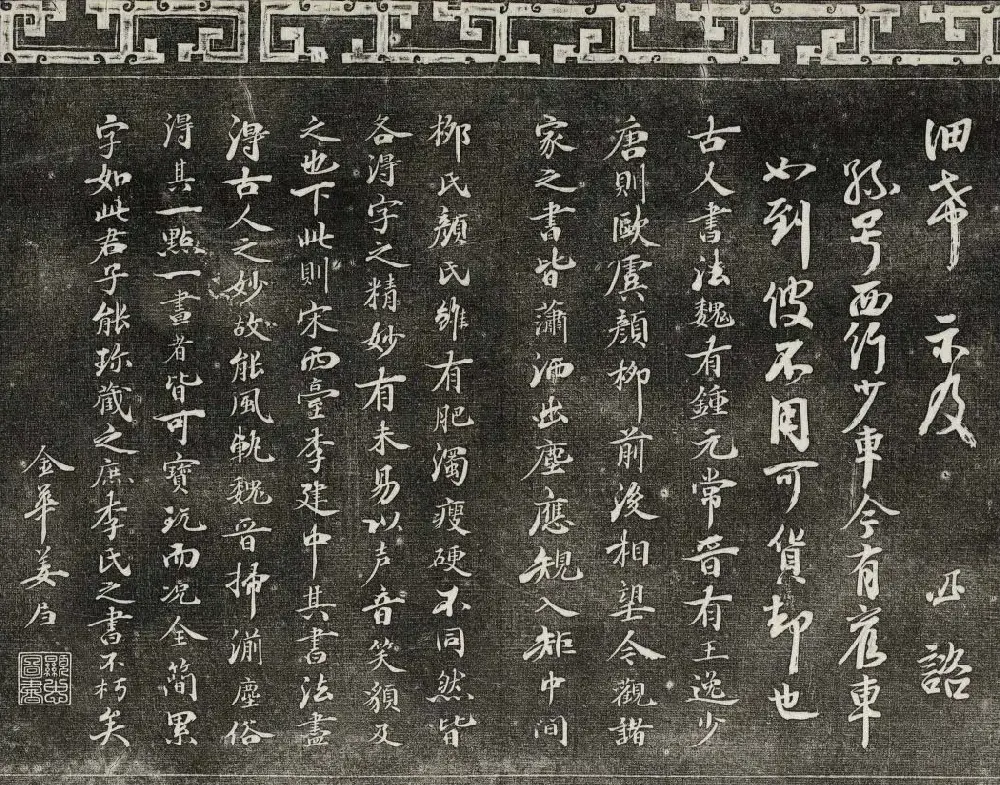 示及
西行少車今有舊車
如到彼不用可貨却也
古人書法魏有鍾元常晉有王逸少
唐則歐虞顏柳前後相望今觀諸
家之書皆蕭洒出塵應規入矩中間
柳氏顏氏雖有肥濁瘦硬不同然皆
各得字之精妙有未易以声音笑貌及
之也下此則宋西臺李建中其書法盡
得古人之妙故能風軌魏晉掃湔塵俗
得其一點一畫者皆可寶玩而況全簡累
字如此君子能珍藏之庶李氏之書不朽矣
金華姜